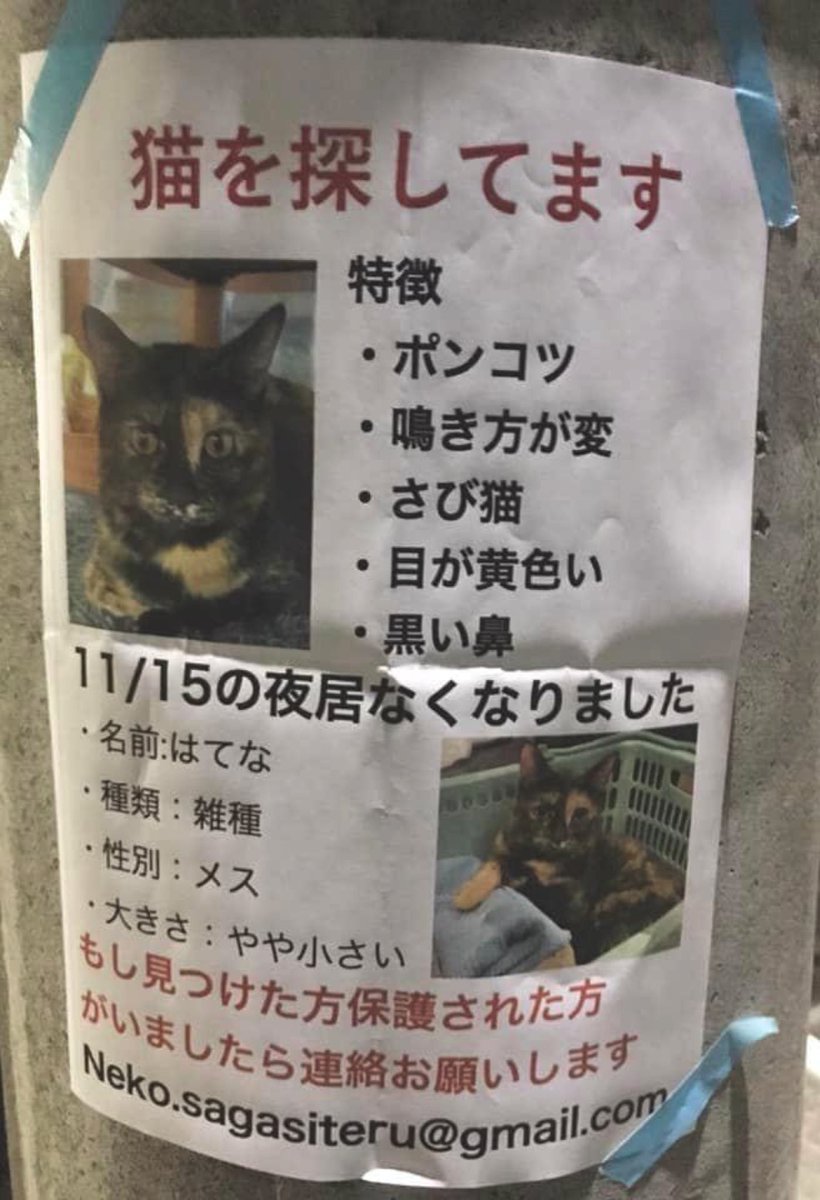 猫を探してます
特徴
・ポンコツ
・鳴き方が変
・さび猫
・目が黄色い
・黒い鼻
11/15の夜居なくなりました
・名前:はてな
・種類：雑種
・性別：メス
・大きさ：やや小さい
もし見つけた方保護された方
がいましたら連絡お願いします
Neko.sagasiteru@gmail.com